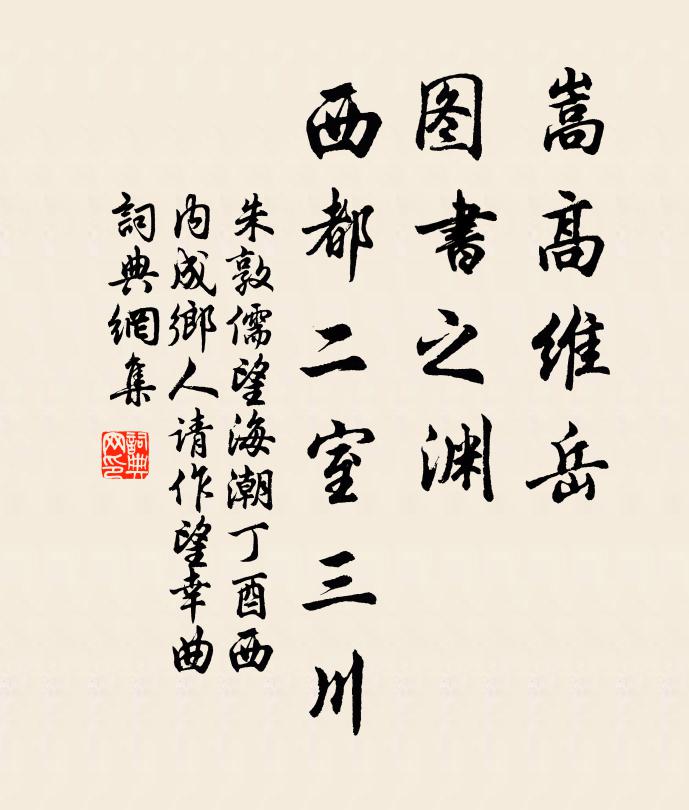 嵩高维岳
图书之渊
西都二室三川
朱敦儒望海潮丁酉西
内成鄉人请作望幸曲
詞典網集
詞典
网印